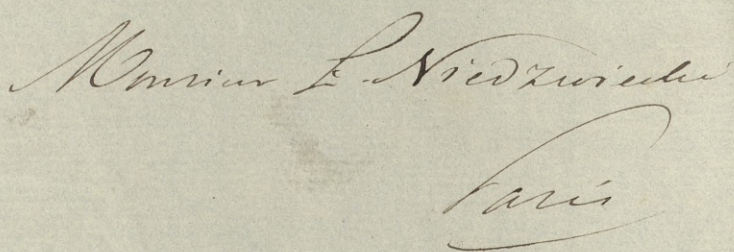 Monsieur L. Niedzwiecki
Paris